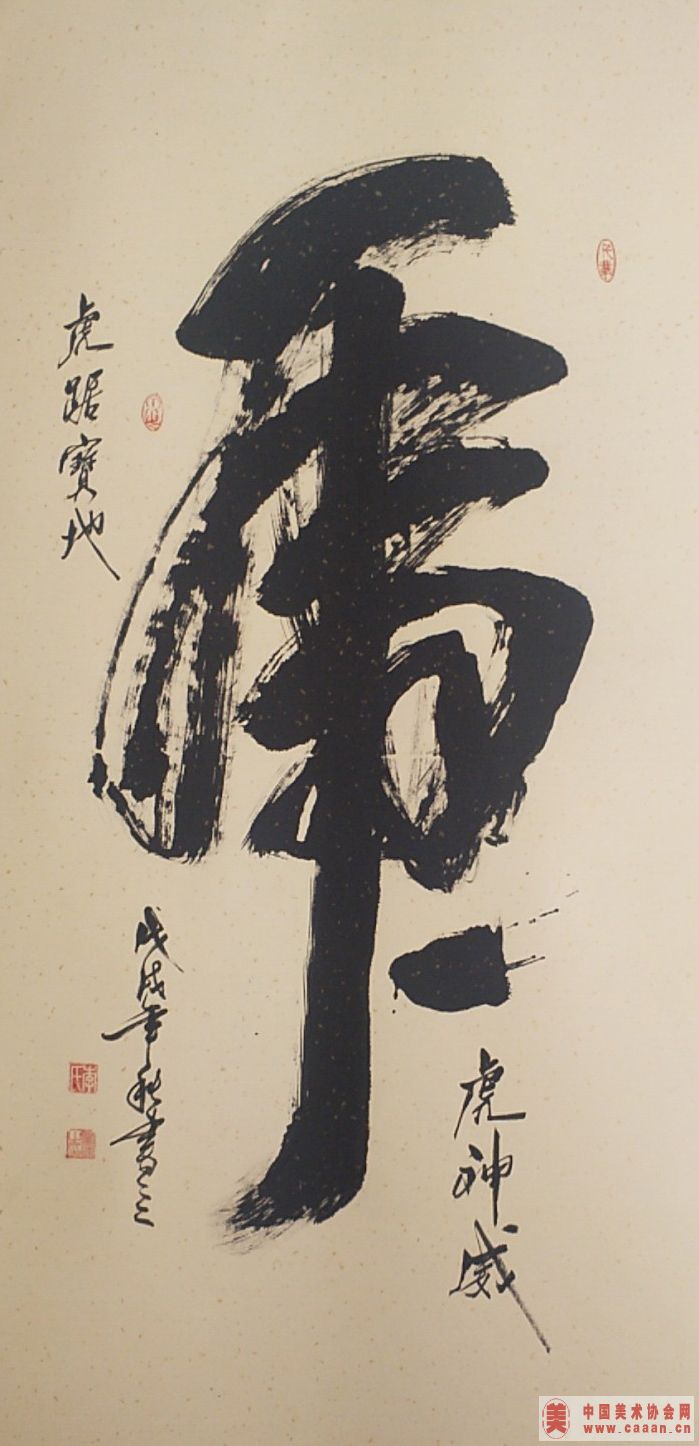 虎
虎踞寶地
虎神威
戊戌年秋書
李氏
中国美术协会网
www.caaan.cn